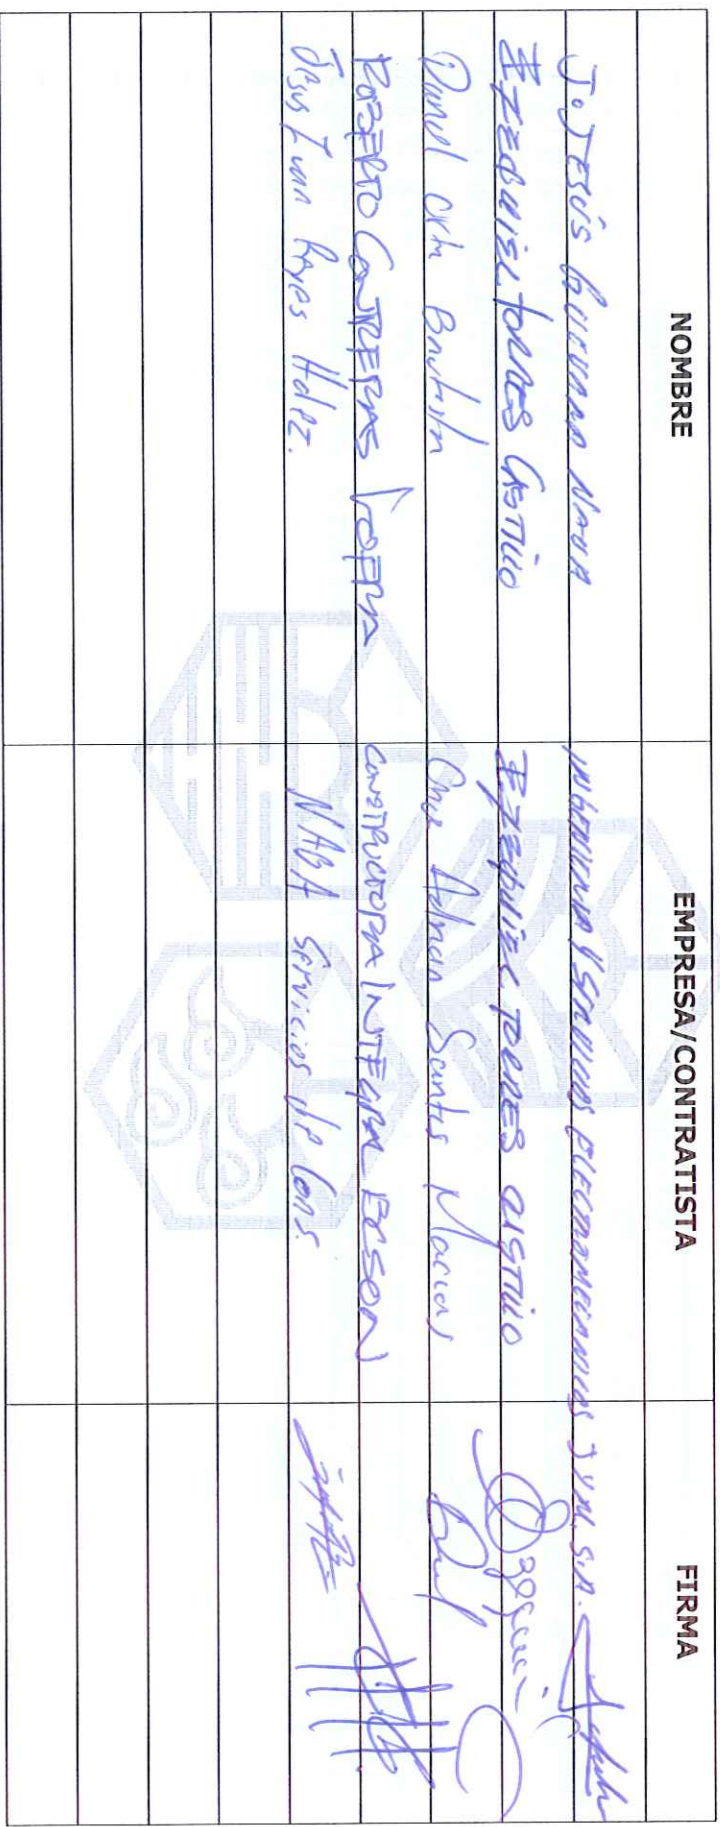 NOMBRE EMPRESA/CONTRATISTA FIRMA
J. JESÚS GUEVARA NAVA INGENIERIA Y SERVICIOS ELECTROMECANICOS S.A.
EZEQUIEL TORRES CASTILLO EZEQUIEL TORRES CASTILLO
Daniel Bautista Adrian Santos Macias
ROBERTO CONTRERAS CONSTRUCTORA INTEGRAL ECSON
Jesus Ivan Reyes Hdez. NABA Servicios de Cons.